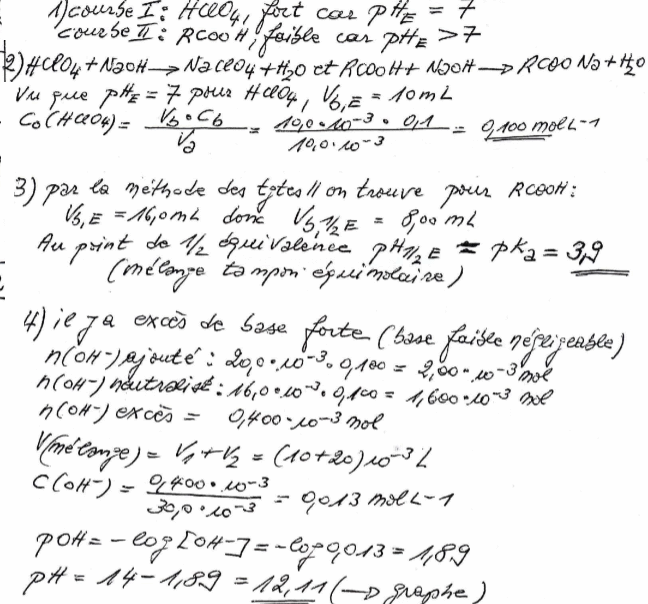 1) courbe I : HClO4, fort car pHE = 7
courbe II : RCOOH, faible car pHE > 7
2) HClO4 + NaOH → NaClO4 + H2O et RCOOH + NaOH → RCOO Na + H2O
Vu que pHE = 7 pour HClO4, Vb,E = 10 mL
C0(HClO4) = Vb • Cb / Va = 10,0 • 10-3 • 0,1 / 10,0 • 10-3 = 0,100 mol L-1
3) par la méthode des tgtes // on trouve pour RCOOH :
Vb,E = 16,0 mL donc Vb,1/2E = 8,00 mL
Au point de 1/2 équivalence pH1/2E = pKa = 3,9
(mélange tampon équimolaire)
4) il y a excès de base forte (base faible négligeable)
n(OH-) ajouté : 20,0 • 10-3 • 0,100 = 2,00 • 10-3 mol
n(OH-) neutralisé : 16,0 • 10-3 • 0,100 = 1,600 • 10-3 mol
n(OH-) excès = 0,400 • 10-3 mol
V(mélange) = V1 + V2 = (10+20) 10-3 L
C(OH-) = 0,400 • 10-3 / 30,0 • 10-3 = 0,013 mol L-1
pOH = -log [OH-] = -log 0,013 = 1,89
pH = 14 - 1,89 = 12,11 (→ graphe)